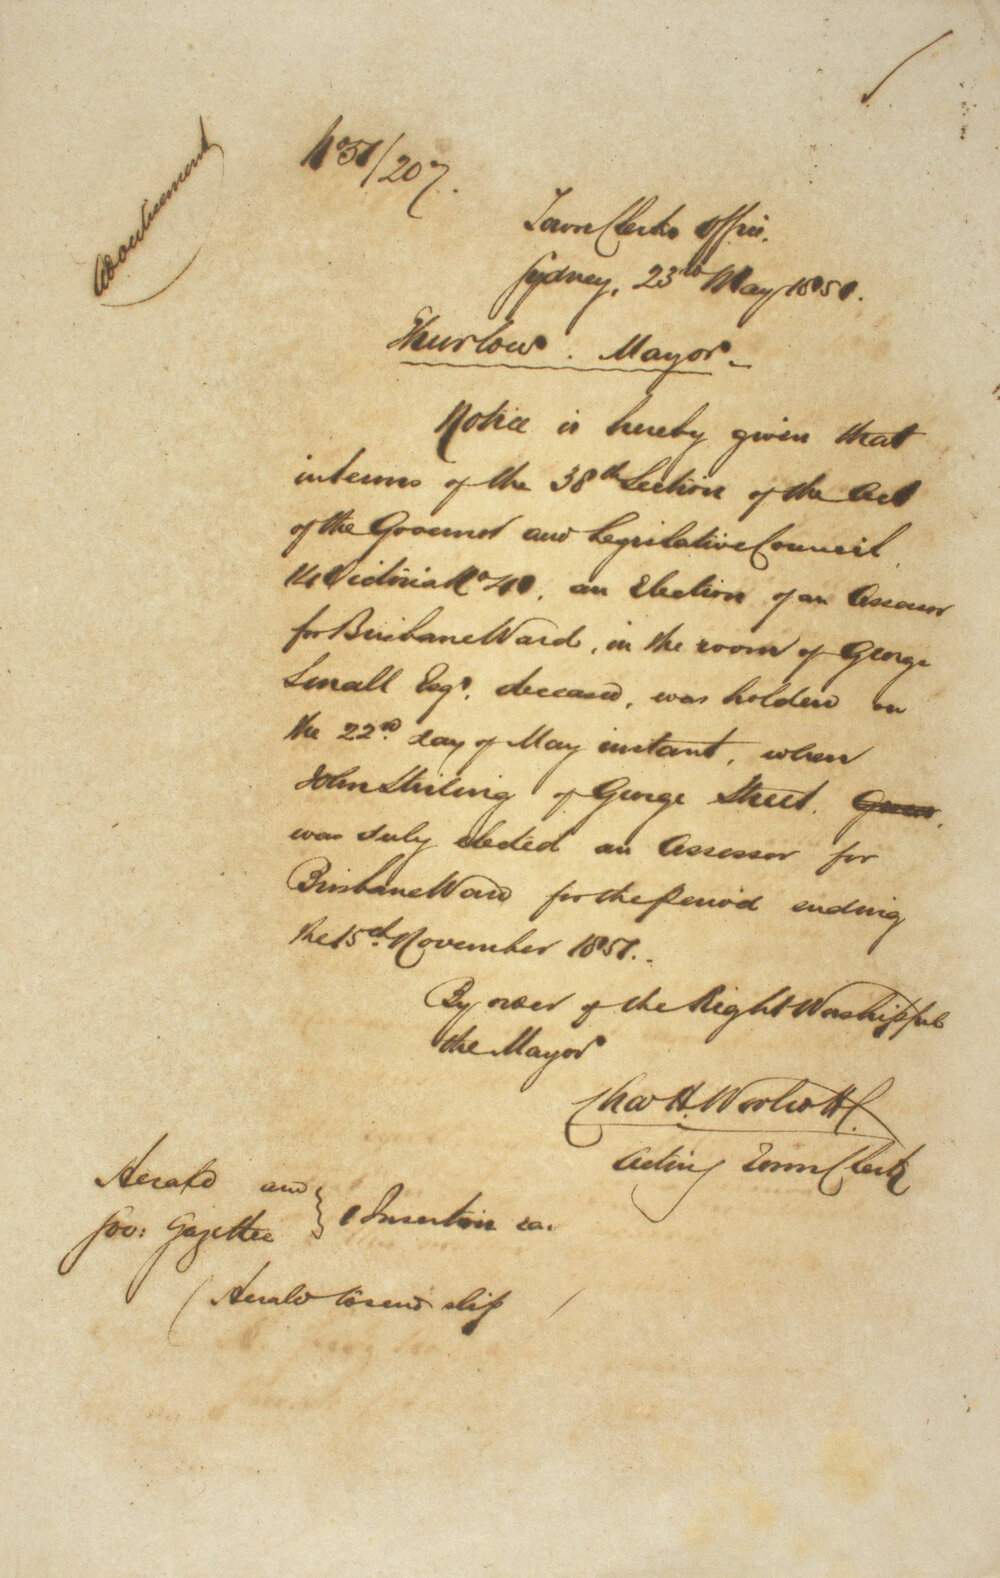 Advertisement
No 51/207.
Town Clerks Office.
Sydney, 23rd May 1851.
Thurlow. Mayor.
Notice is hereby given that
in terms of the 38th Section of the Act
of the Governor and Legislative Council,
14 Victoria No 41, an Election of an Assessor
for Brisbane Ward, in the room of George
Small Esqr. deceased, was holden on
the 22nd day of May instant, when
John Stirling of George Street.
was duly elected an Assessor for
Brisbane Ward for the Period ending
the 15th November 1851.
By order of the Right Worshipful
the Mayor
Chas H. Woolcott
Acting Town Clerk
Herald and
Gov: Gazette } 1 Insertion ea.
(Herald to send slip